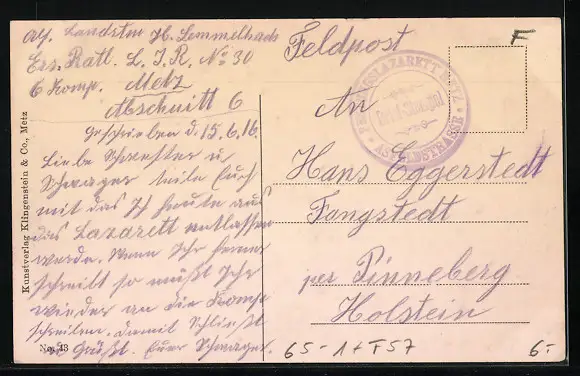 Abs. Landstm H. Lemmelhads
Ers. Batl. L. I. R. No 30
6 Komp. Metz
Abschnitt 6
Geschrieben d. 15.6.16.
Liebe Schwester u
Schwager teile Euch
mit das Ich heute aus
das Lazarett entlassen
werde. Wenn Ihr ferner
schreibt so müßt Ihr
wieder an die Komp
schreiben. damit Schließt
Grüßt. Euer Schwager.
Kunstverlag Klingenstein & Co., Metz
No. 43
Feldpost
F
An
Hans Eggerstedt
Tangstedt
per Pinneberg
Holstein
65-1+F57
6.-